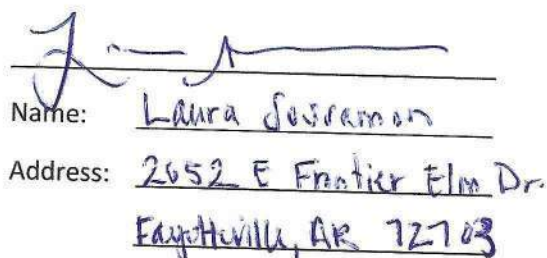 Name: Laura Sossamon
Address: 2652 E Frontier Elm Dr.
Fayetteville, AR 72703